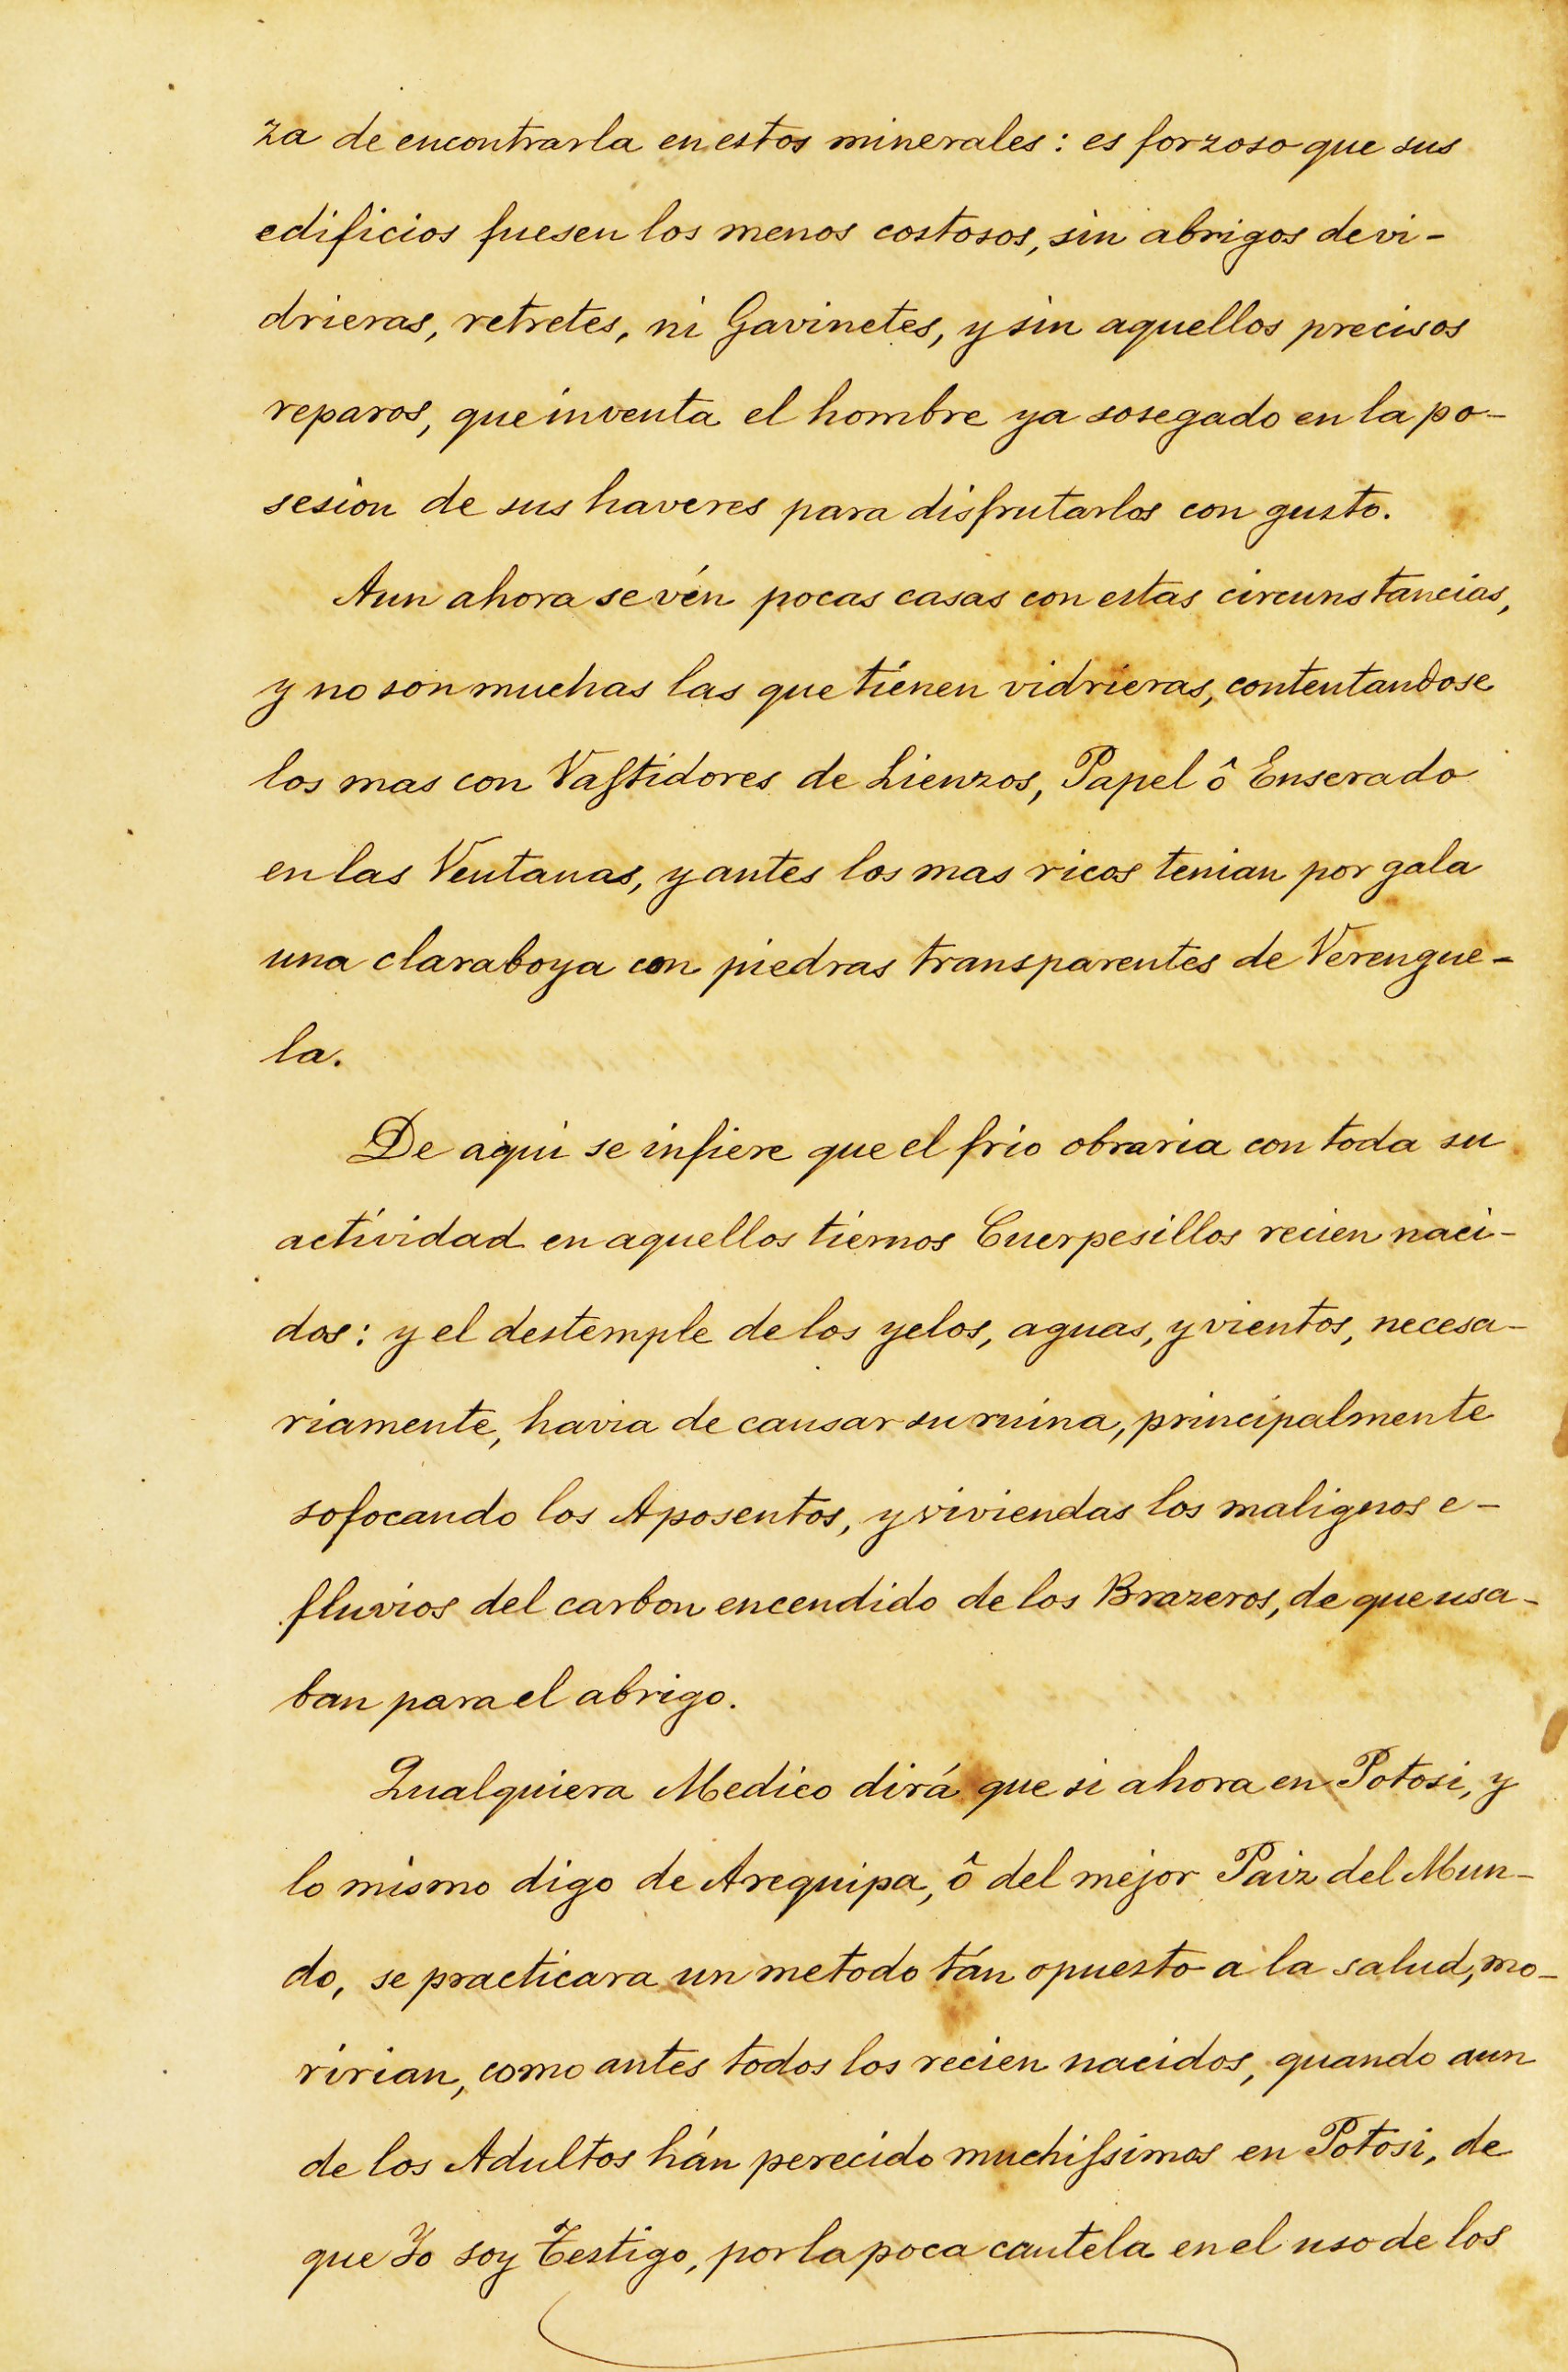 za de encontrarla en estos minerales: es forzoso que sus
edificios fuesen los menos costosos, sin abrigos de vi-
drieras, retretes, ni Gavinetes, y sin aquellos precisos
reparos, que inventa el hombre ya sosegado en la po-
sesion de sus haveres para disfrutarlos con gusto.
Aun ahora se vén pocas casas con estas circunstancias,
y no son muchas las que tiénen vidrieras, contentandose
los mas con Vaſtidores de Lienzos, Papel ô Enserado
en las Ventanas, y antes los mas ricos tenian por gala
una claraboya con piedras transparentes de Verengue-
la.
De aqui se infiere que el frio obraria con toda su
actividad en aquellos tiernos Cuerpesillos recien naci-
dos: y el destemple de los yelos, aguas, y vientos, necesa-
riamente, havia de causar su ruina, principalmente
sofocando los Aposentos, y viviendas los malignos e-
fluvios del carbon encendido de los Brazeros, de que usa-
ban para el abrigo.
Qualquiera Medico dirá que si ahora en Potosi, y
lo mismo digo de Arequipa, ô del mejor Paiz del Mun-
do, se practicara un metodo tán opuesto a la salud, mo-
ririan, como antes todos los recien nacidos, quando aun
de los Adultos hán perecido muchiſsimos en Potosi, de
que Yo soy Testigo, por la poca cautela en el uso de los